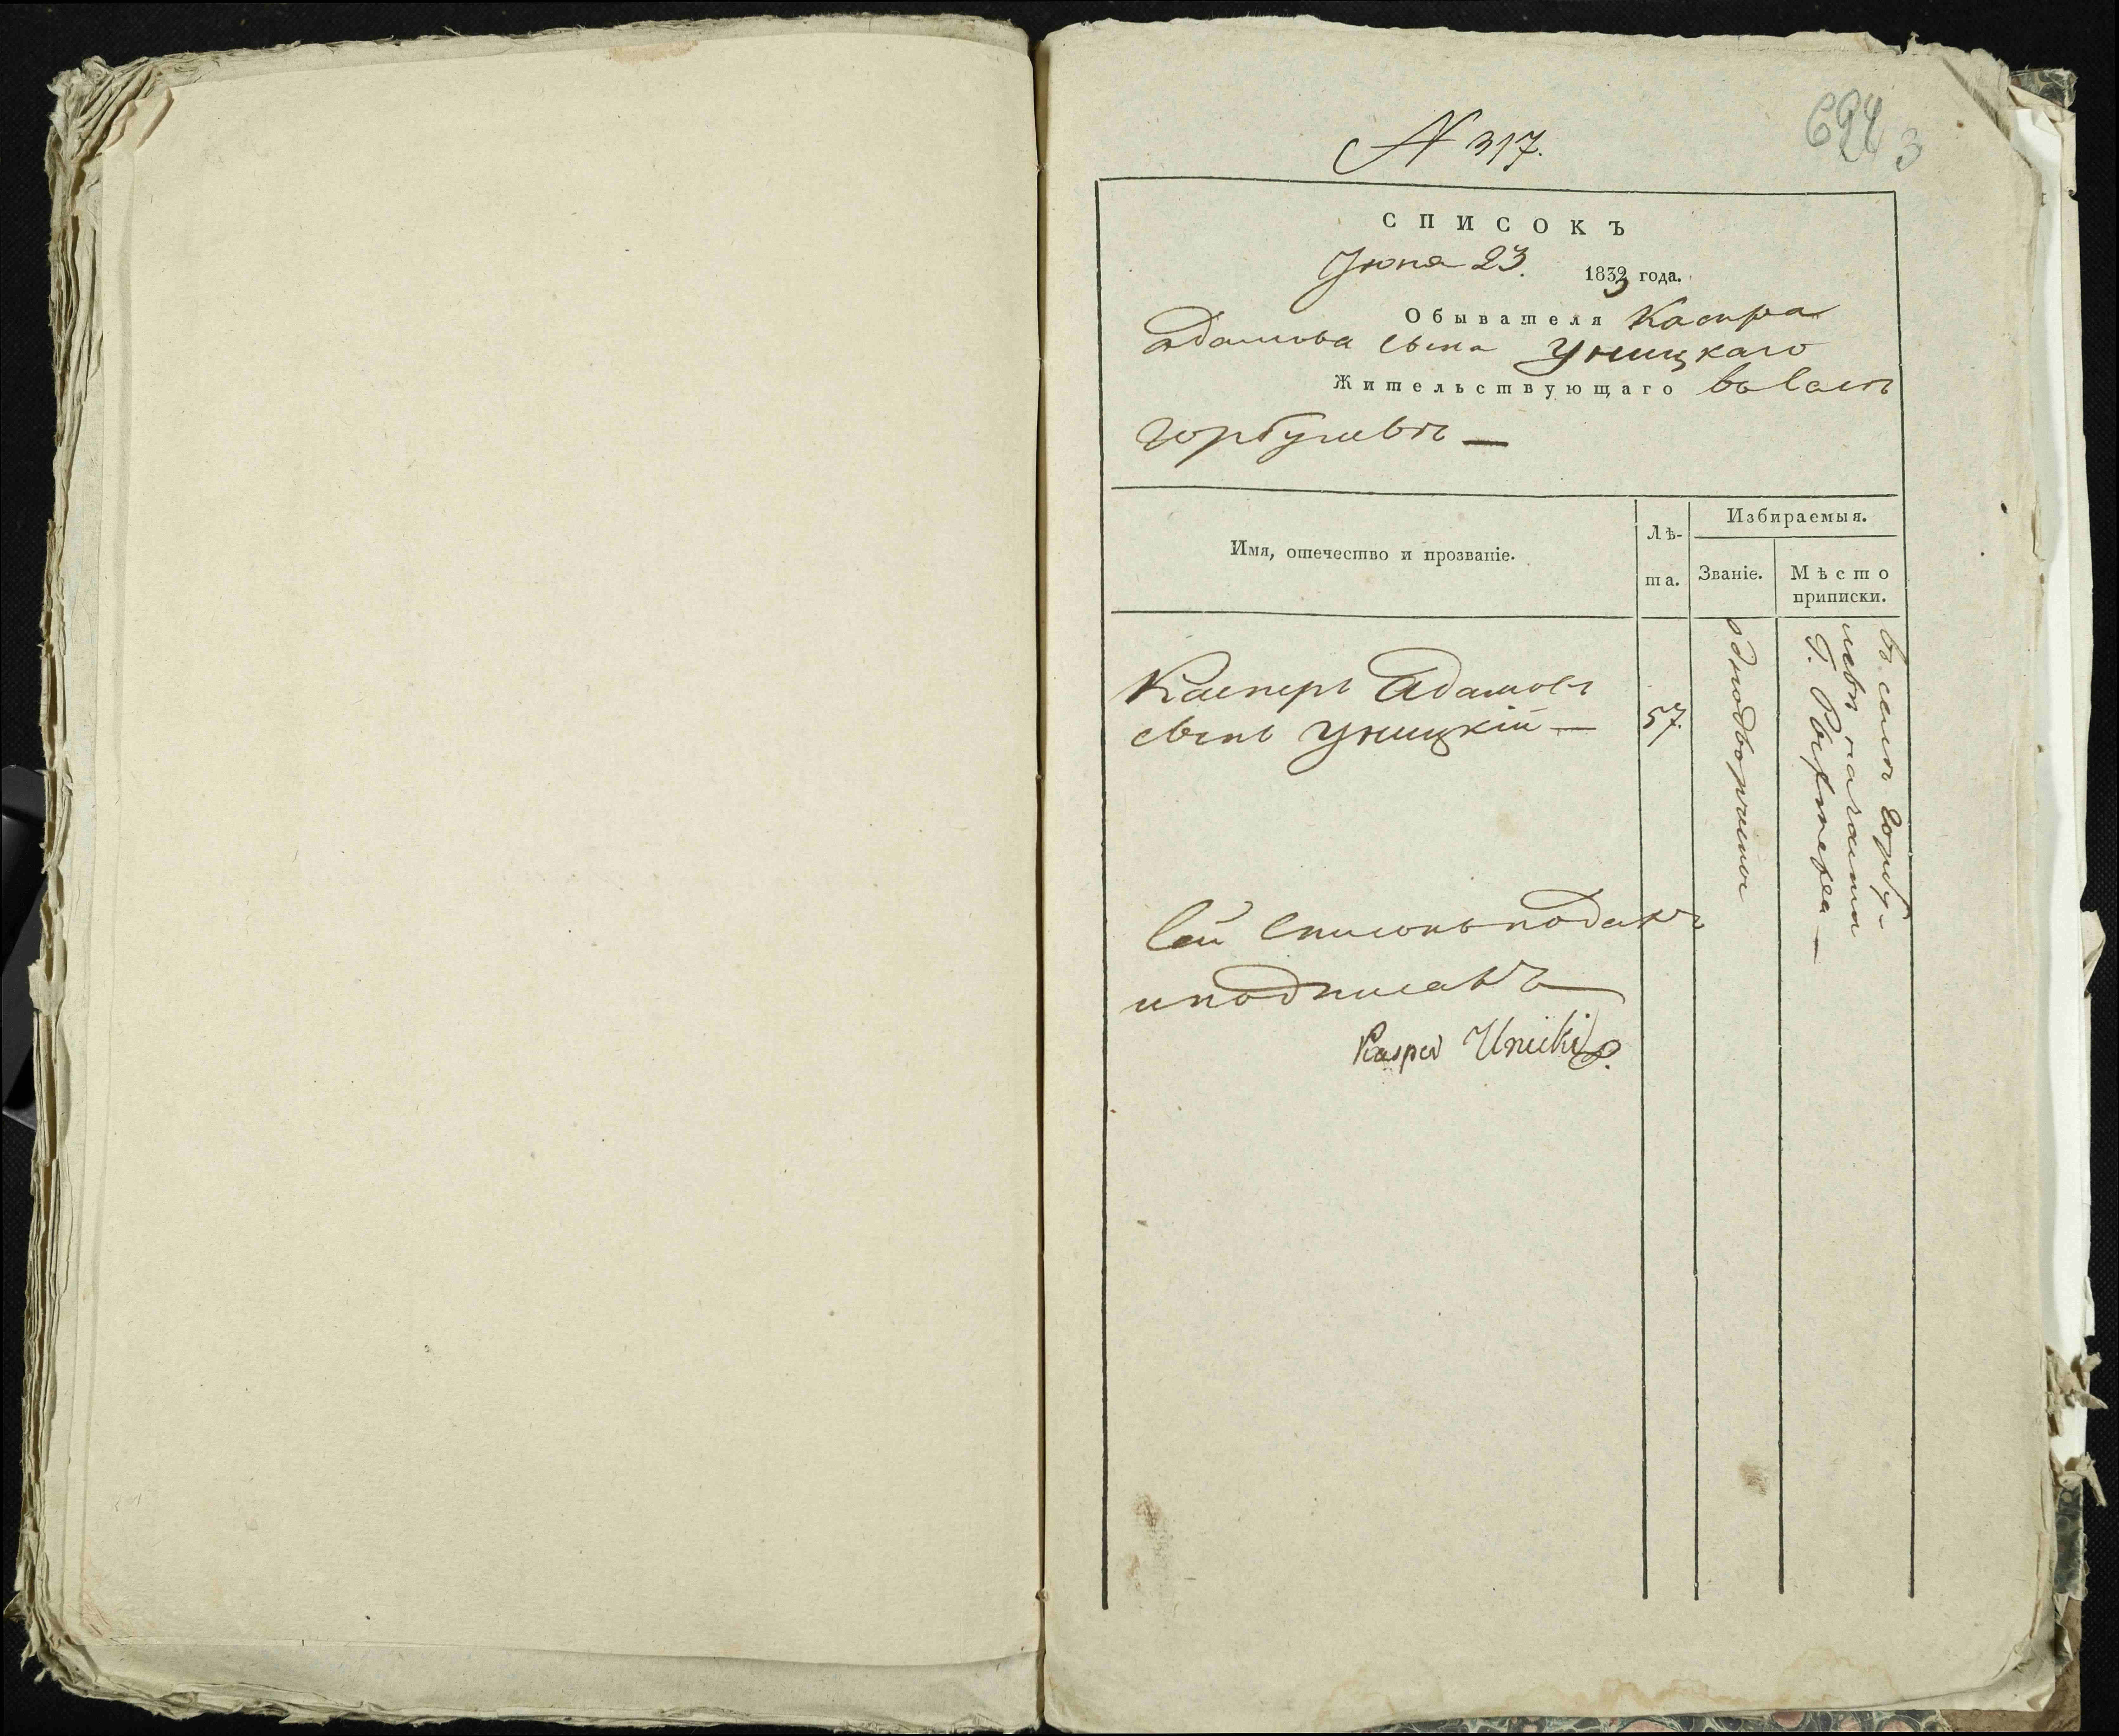 N 317.
694 3
СПИСОКЪ
Іюня 23. 1833 года.
Обывателя Каспра
Адамова сына Уницкаго
Жительствующаго въ селѣ
Горбулевѣ —
Имя, отечество и прозваніе.
Лѣ-
та.
Избираемыя.
Званіе.
Мѣсто
приписки.
Касперъ Адамовъ
сынъ Уницкій —
57.
въ селѣ Горбу-
левѣ
Г.
Сей списокъ подавъ
и подписавъ
Kasper Unicki